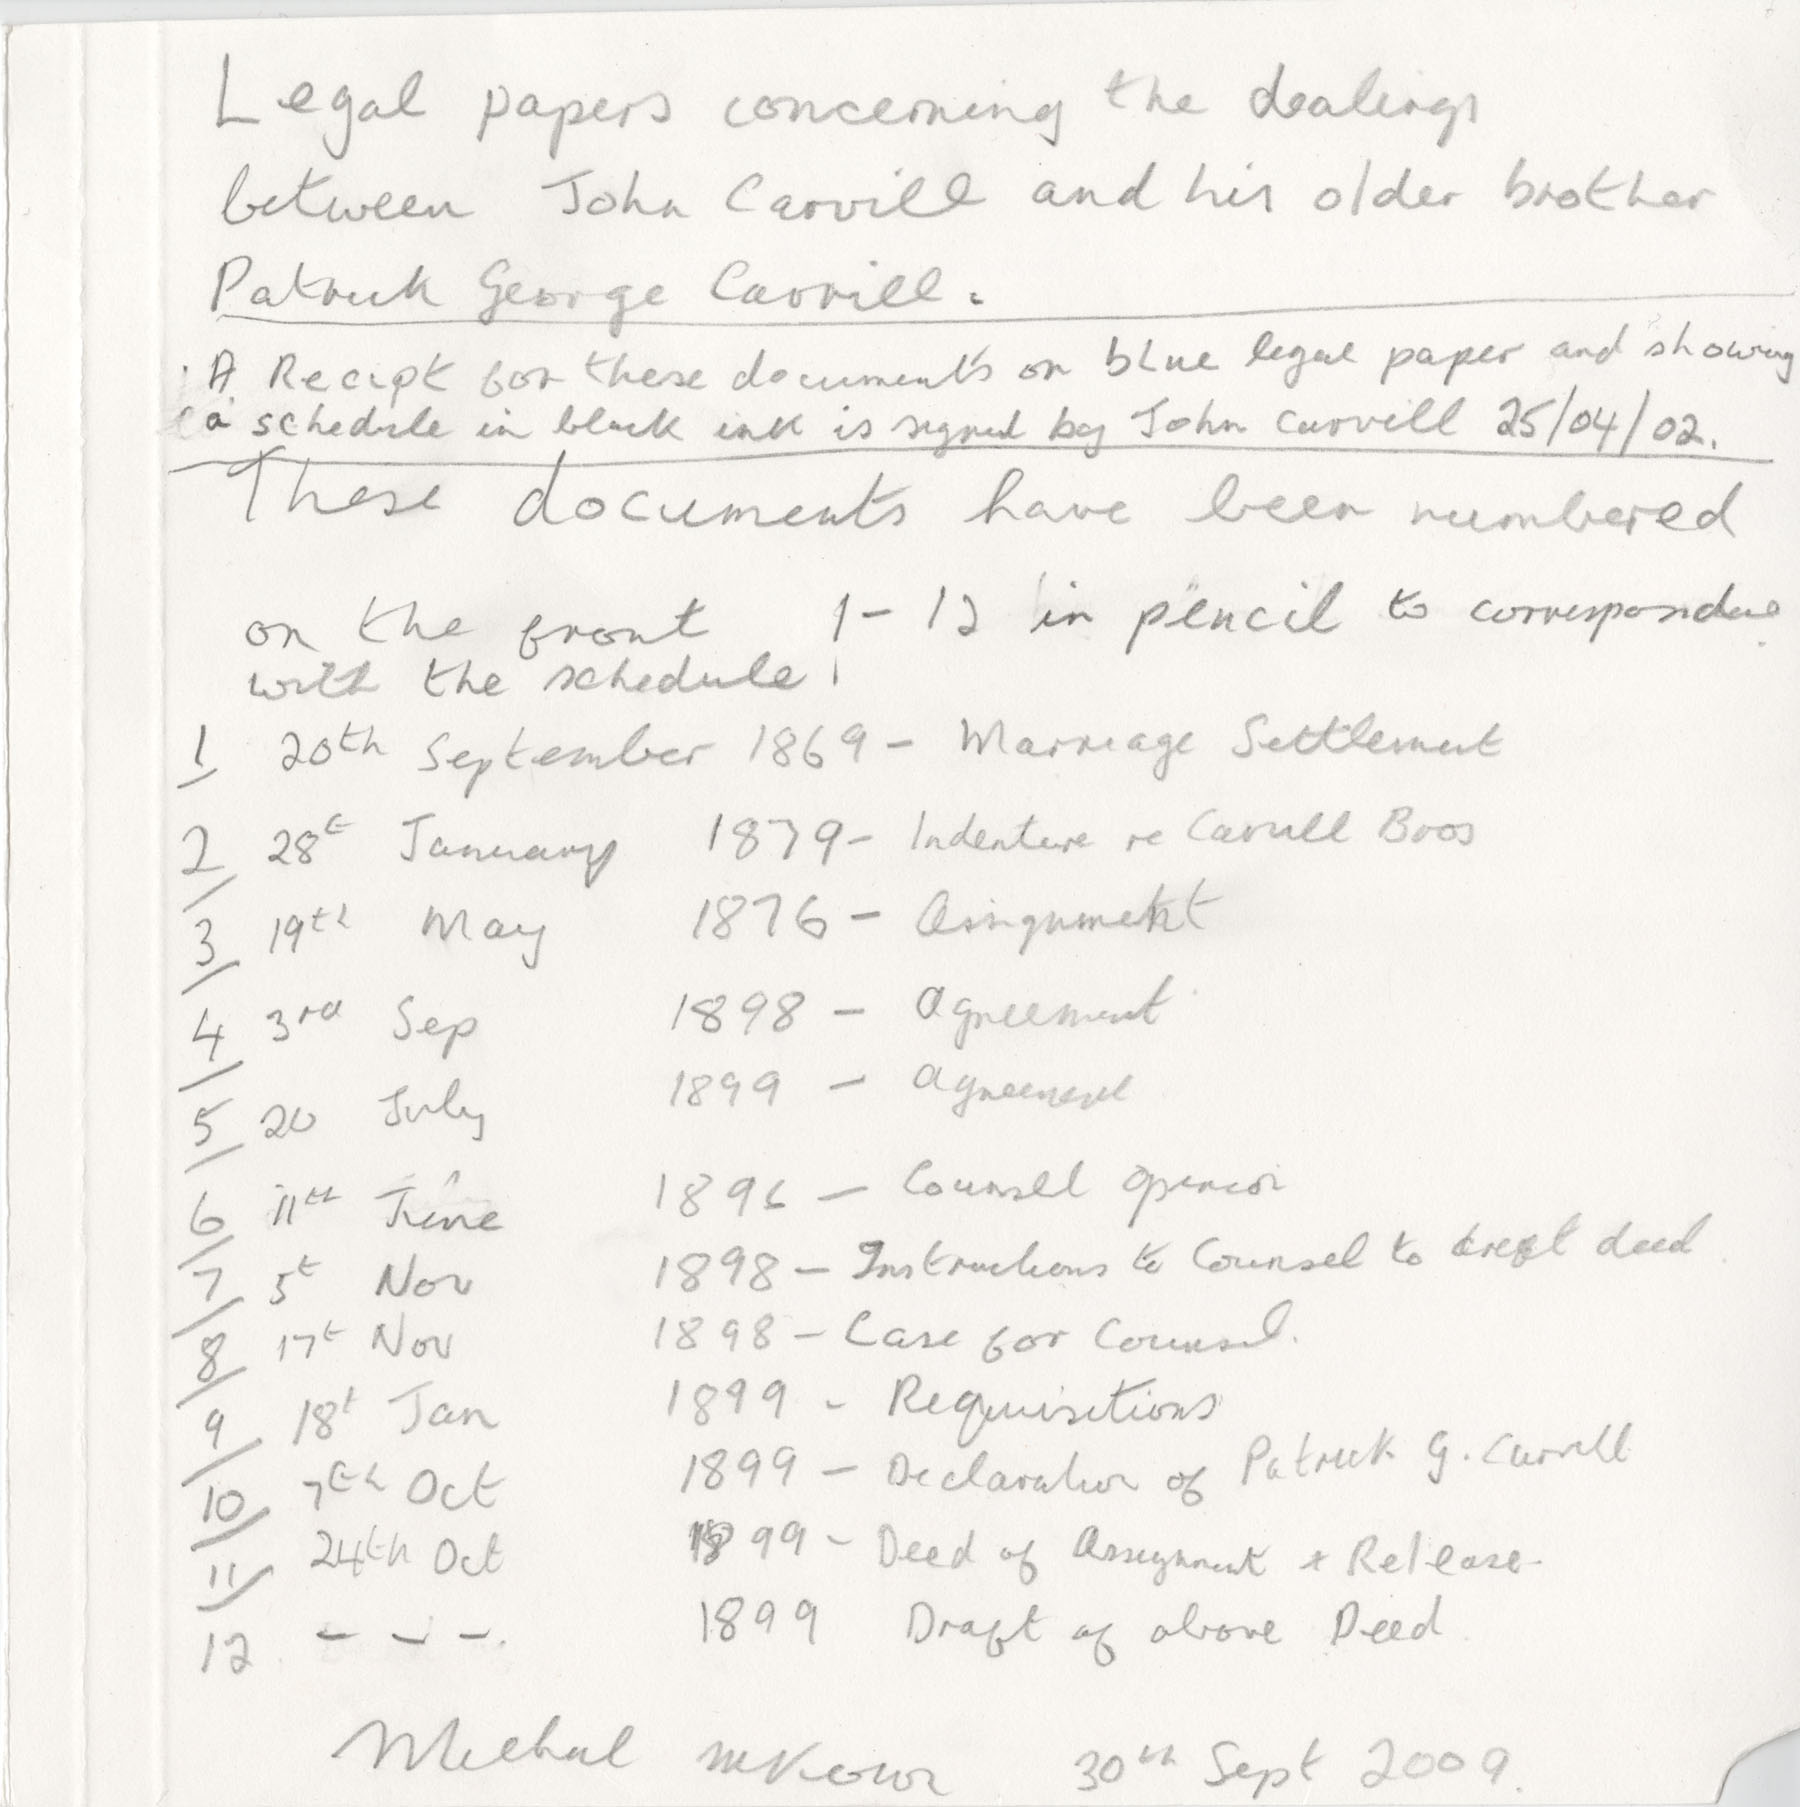 Legal papers concerning the dealings
between John Carvill and his older brother
Patrick George Carvill.
A Recipt for these documents on blue legal paper and showing
a schedule in black ink is signed by John Carvill 25/04/02.
These documents have been numbered
on the front 1-12 in pencil to correspondence
with the schedule!
1/ 20th September 1869 - Marriage Settlement
2/ 28t January 1879 - Indenture re Carvill Bros
3/ 19th May 1876 - Assignment
4/ 3rd Sep 1898 - Agreement
5/ 20 July 1899 - Agreement
6/ 11th June 1896 - Counsel opinion
7/ 5t Nov 1898 - Instructions to Counsel to draft deed
8/ 17t Nov 1898 - Case for Counsel.
9/ 18t Jan 1899 - Requisitions
10/ 7th Oct 1899 - Declaration of Patrick G. Carvill
11/ 24th Oct 1899 - Deed of Assignment + Release
12 - - -. 1899 Draft of above Deed
Micheal McKeown 30th Sept 2009.